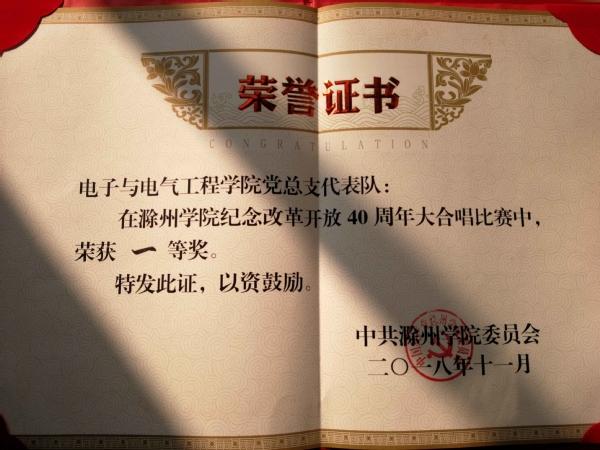 荣誉证书
CONGRATULATION
电子与电气工程学院党总支代表队：
在滁州学院纪念改革开放 40 周年大合唱比赛中，
荣获 一 等奖。
特发此证，以资鼓励。
中共滁州学院委员会
二〇一八年十一月